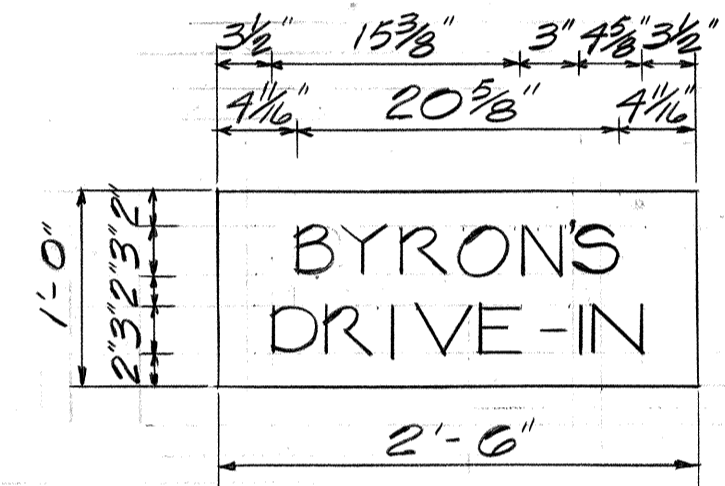 3½" 15⅜" 3" 4⅝" 3½"
4 11/16" 20⅝" 4 11/16"
1'-0"
2" 3" 2" 3" 2"
BYRON'S
DRIVE-IN
2'-6"